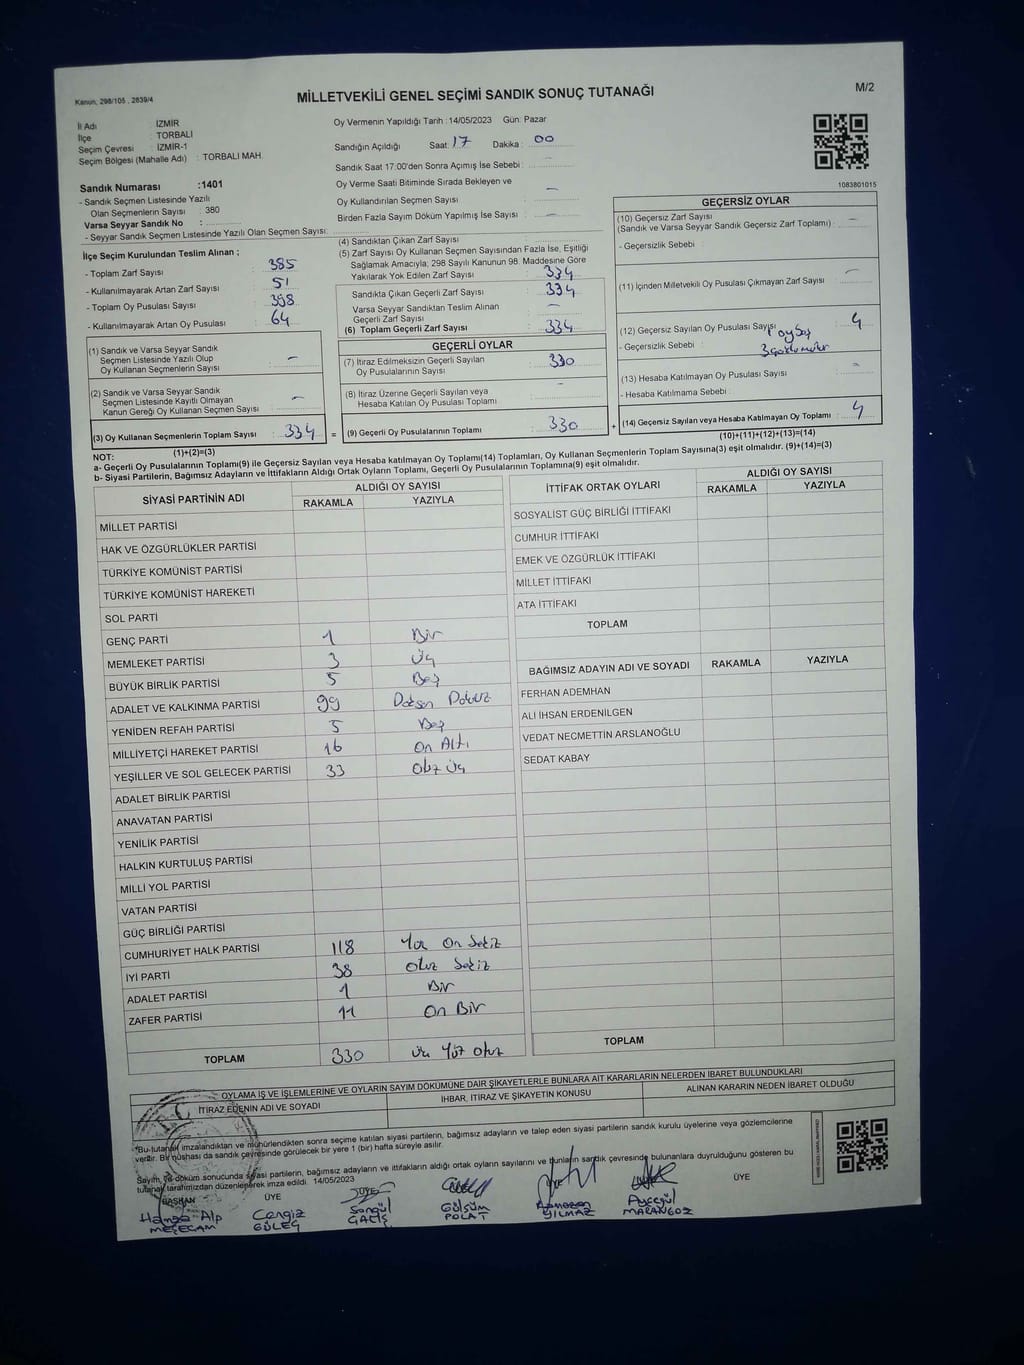 Kanun, 298/105 , 2839/4
MİLLETVEKİLİ GENEL SEÇİMİ SANDIK SONUÇ TUTANAĞI
M/2
İl Adı : İZMİR
İlçe : TORBALI
Seçim Çevresi : İZMİR-1
Seçim Bölgesi (Mahalle Adı) : TORBALI MAH.
Oy Vermenin Yapıldığı Tarih : 14/05/2023 Gün: Pazar
Sandığın Açıldığı Saat: 17 Dakika : 00
Sandık Saat 17:00'den Sonra Açımış İse Sebebi : —
Oy Verme Saati Bitiminde Sırada Bekleyen ve
Oy Kullandırılan Seçmen Sayısı : —
Birden Fazla Sayım Döküm Yapılmış İse Sayısı : —
1083801015
Sandık Numarası :1401
- Sandık Seçmen Listesinde Yazılı
Olan Seçmenlerin Sayısı : 380
Varsa Seyyar Sandık No :
- Seyyar Sandık Seçmen Listesinde Yazılı Olan Seçmen Sayısı:
İlçe Seçim Kurulundan Teslim Alınan ;
- Toplam Zarf Sayısı : 385
- Kullanılmayarak Artan Zarf Sayısı : 51
- Toplam Oy Pusulası Sayısı : 398
- Kullanılmayarak Artan Oy Pusulası : 64
(1) Sandık ve Varsa Seyyar Sandık
Seçmen Listesinde Yazılı Olup
Oy Kullanan Seçmenlerin Sayısı : —
(2) Sandık ve Varsa Seyyar Sandık
Seçmen Listesinde Kayıtlı Olmayan
Kanun Gereği Oy Kullanan Seçmen Sayısı : —
(3) Oy Kullanan Seçmenlerin Toplam Sayısı : 334 =
(1)+(2)=(3)
(4) Sandıktan Çıkan Zarf Sayısı :
(5) Zarf Sayısı Oy Kullanan Seçmen Sayısından Fazla İse, Eşitliği
Sağlamak Amacıyla; 298 Sayılı Kanunun 98. Maddesine Göre
Yakılarak Yok Edilen Zarf Sayısı : 334
Sandıkta Çıkan Geçerli Zarf Sayısı : 334
Varsa Seyyar Sandıktan Teslim Alınan
Geçerli Zarf Sayısı : —
(6) Toplam Geçerli Zarf Sayısı : 334
GEÇERLİ OYLAR
(7) İtiraz Edilmeksizin Geçerli Sayılan
Oy Pusulalarının Sayısı : 330
(8) İtiraz Üzerine Geçerli Sayılan veya
Hesaba Katılan Oy Pusulası Toplamı : —
(9) Geçerli Oy Pusulalarının Toplamı : 330 +
GEÇERSİZ OYLAR
(10) Geçersiz Zarf Sayısı
(Sandık ve Varsa Seyyar Sandık Geçersiz Zarf Toplamı) : —
- Geçersizlik Sebebi :
(11) İçinden Milletvekili Oy Pusulası Çıkmayan Zarf Sayısı : —
(12) Geçersiz Sayılan Oy Pusulası Sayısı : 4
- Geçersizlik Sebebi :
(13) Hesaba Katılmayan Oy Pusulası Sayısı : —
- Hesaba Katılmama Sebebi :
(14) Geçersiz Sayılan veya Hesaba Katılmayan Oy Toplamı : 4
(10)+(11)+(12)+(13)=(14)
NOT:
a- Geçerli Oy Pusulalarının Toplamı(9) ile Geçersiz Sayılan veya Hesaba Katılmayan Oy Toplamı(14) Toplamları, Oy Kullanan Seçmenlerin Toplam Sayısına(3) eşit olmalıdır. (9)+(14)=(3)
b- Siyasi Partilerin, Bağımsız Adayların ve İttifakların Aldığı Ortak Oyların Toplamı, Geçerli Oy Pusulalarının Toplamına(9) eşit olmalıdır.
SİYASİ PARTİNİN ADI
ALDIĞI OY SAYISI
RAKAMLA YAZIYLA
MİLLET PARTİSİ
HAK VE ÖZGÜRLÜKLER PARTİSİ
TÜRKİYE KOMÜNİST PARTİSİ
TÜRKİYE KOMÜNİST HAREKETİ
SOL PARTİ
GENÇ PARTİ 1 Bir
MEMLEKET PARTİSİ 3 Üç
BÜYÜK BİRLİK PARTİSİ 5 Beş
ADALET VE KALKINMA PARTİSİ 99 Doksan Dokuz
YENİDEN REFAH PARTİSİ 5 Beş
MİLLİYETÇİ HAREKET PARTİSİ 16 On Altı
YEŞİLLER VE SOL GELECEK PARTİSİ 33 Otuz Üç
ADALET BİRLİK PARTİSİ
ANAVATAN PARTİSİ
YENİLİK PARTİSİ
HALKIN KURTULUŞ PARTİSİ
MİLLİ YOL PARTİSİ
VATAN PARTİSİ
GÜÇ BİRLİĞİ PARTİSİ
CUMHURİYET HALK PARTİSİ 118 Yüz On Sekiz
İYİ PARTİ 38 Otuz Sekiz
ADALET PARTİSİ 1 Bir
ZAFER PARTİSİ 11 On Bir
TOPLAM 330 Üç Yüz Otuz
İTTİFAK ORTAK OYLARI
ALDIĞI OY SAYISI
RAKAMLA YAZIYLA
SOSYALİST GÜÇ BİRLİĞİ İTTİFAKI
CUMHUR İTTİFAKI
EMEK VE ÖZGÜRLÜK İTTİFAKI
MİLLET İTTİFAKI
ATA İTTİFAKI
TOPLAM
BAĞIMSIZ ADAYIN ADI VE SOYADI RAKAMLA YAZIYLA
FERHAN ADEMHAN
ALİ İHSAN ERDENİLGEN
VEDAT NECMETTİN ARSLANOĞLU
SEDAT KABAY
TOPLAM
OYLAMA İŞ VE İŞLEMLERİNE VE OYLARIN SAYIM DÖKÜMÜNE DAİR ŞİKAYETLERLE BUNLARA AİT KARARLARIN NELERDEN İBARET BULUNDUKLARI
İTİRAZ EDENİN ADI VE SOYADI
İHBAR, İTİRAZ VE ŞİKAYETİN KONUSU
ALINAN KARARIN NEDEN İBARET OLDUĞU
*Bu tutanak imzalandıktan ve mühürlendikten sonra seçime katılan siyasi partilerin, bağımsız adayların ve talep eden siyasi partilerin sandık kurulu üyelerine veya gözlemcilerine
verilir. Bir nüshası da sandık çevresinde görülecek bir yere 1 (bir) hafta süreyle asılır.
Sayım ve döküm sonucunda siyasi partilerin, bağımsız adayların ve ittifakların aldığı ortak oyların sayılarını ve bunların sandık çevresinde bulunanlara duyrulduğunu gösteren bu
tutanak tarafımızdan düzenlenerek imza edildi. 14/05/2023
BAŞKAN ÜYE ÜYE
Hamza Alp Cengiz Songül Gülsüm Ramazan Ayşegül
MEŞECAM GÜLEÇ GALİŞ POLAT YILMAZ MARANGOZ